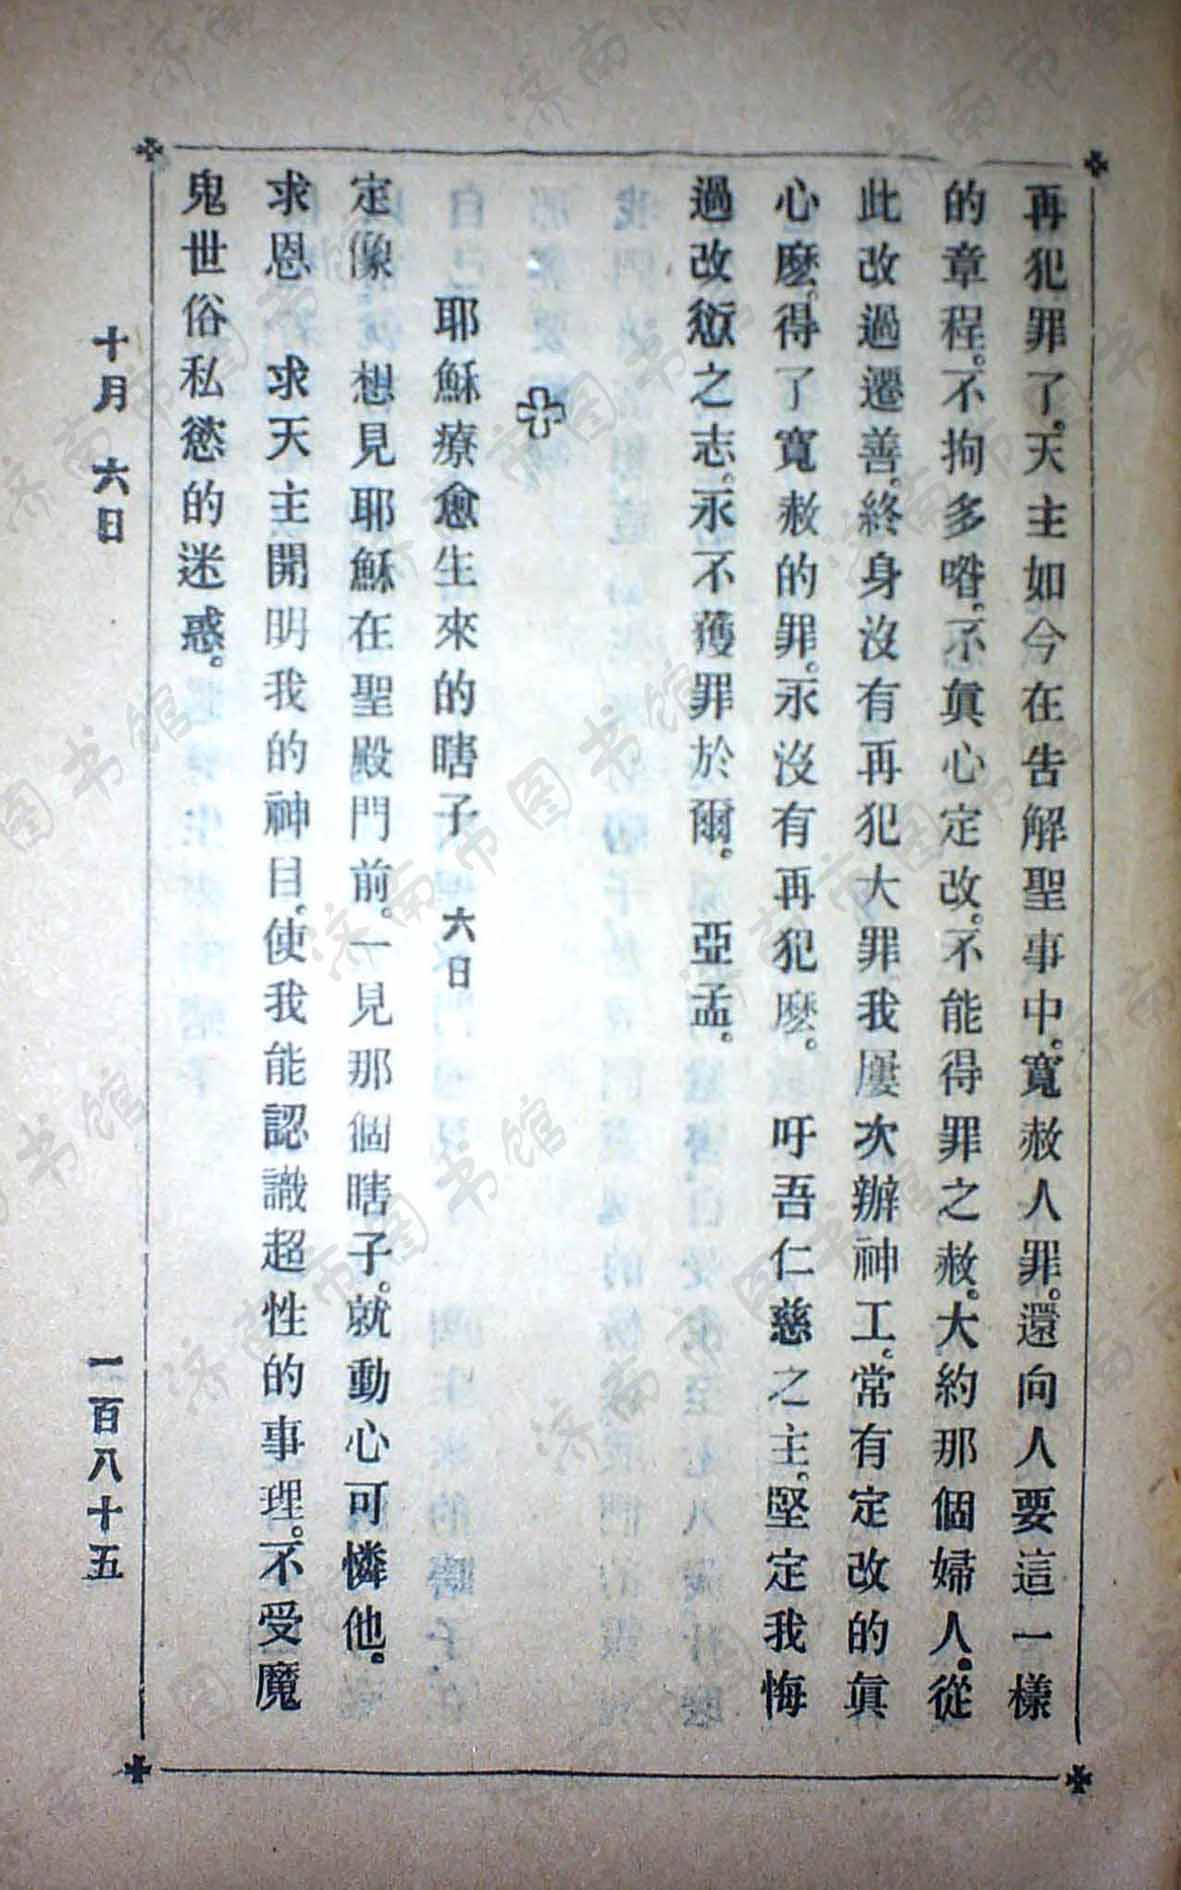 再犯罪了。天主如今在告解聖事中。寬赦人罪。還向人要這一樣
的章程。不拘多喒。不眞心定改。不能得罪之赦。大約那個婦人。從
此改過遷善。終身沒有再犯大罪我屢次辦神工。常有定改的眞
心麼。得了寬赦的罪。永沒有再犯麼。 吁吾仁慈之主。堅定我悔
過改愆之志。永不獲罪於爾。 亞孟。
耶穌療愈生來的瞎子 六日
定像 想見耶穌在聖殿門前。一見那個瞎子。就動心可憐他。
求恩 求天主開明我的神目。使我能認識超性的事理。不受魔
鬼世俗私慾的迷惑。
十月 六日 一百八十五
济南市图书馆